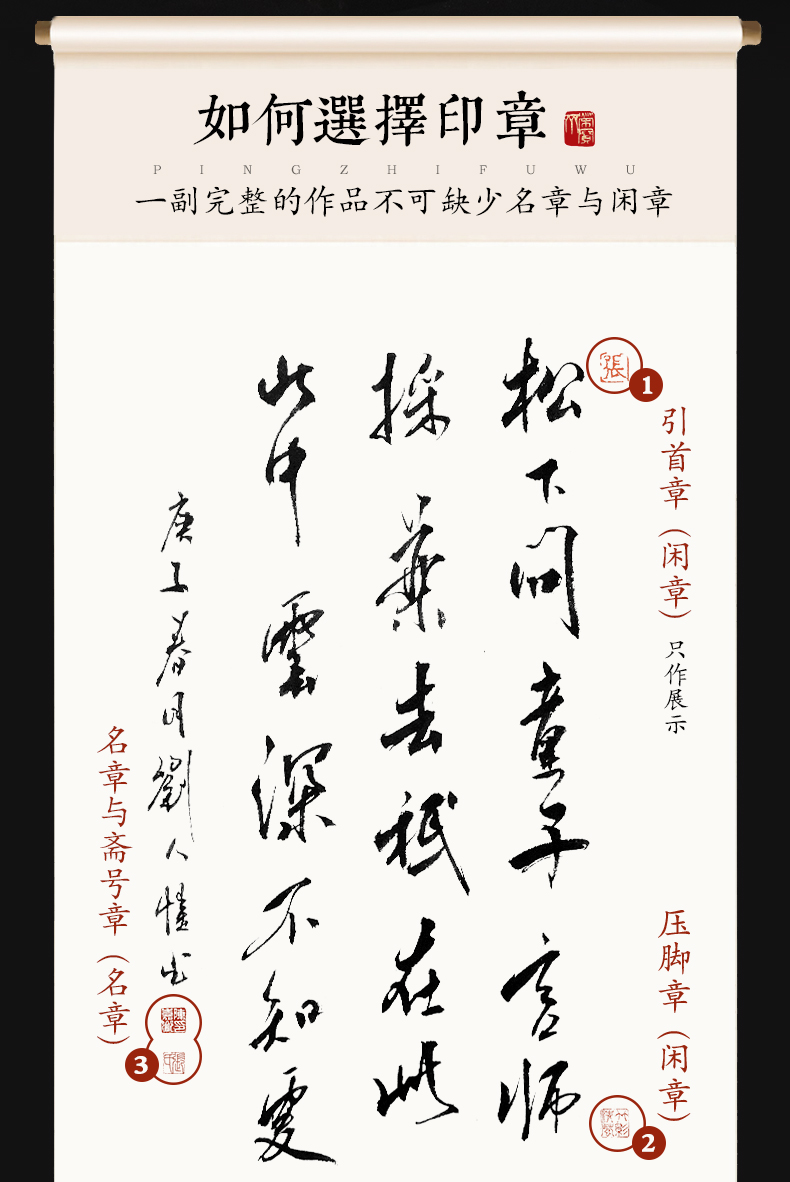 如何選擇印章
PINGZHIFUWU
一副完整的作品不可缺少名章与闲章
張
1
引首章（闲章）
只作展示
松下問童子言師
採藥去祇在此
山中雲深不知處
庚子春月劉人书
名章与斋号章（名章）
3
压脚章（闲章）
2